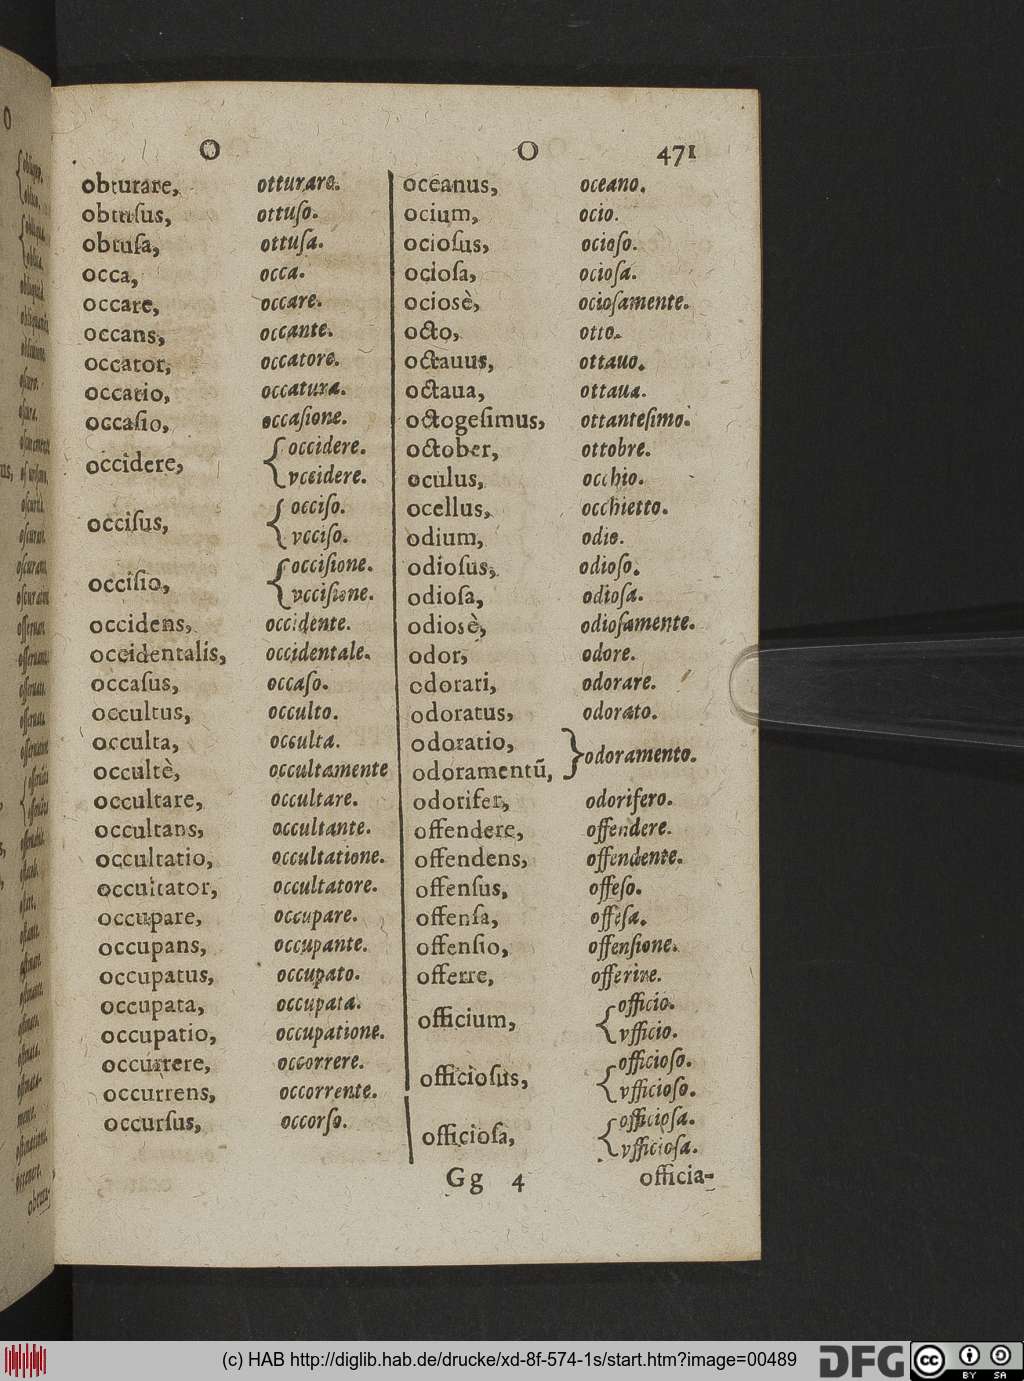 O O 471
obturare, otturare.
obtusus, ottuſo.
obtuſa, ottuſa.
occa, occa.
occare, occare.
occans, occante.
occator, occatore.
occatio, occatura.
occaſio, occaſione.
occidere, { occidere.
vccidere.
occiſus, { occiſo.
vcciſo.
occiſio, { occiſione.
vcciſione.
occidens, occidente.
occidentalis, occidentale.
occaſus, occaſo.
occultus, occulto.
occulta, occulta.
occultè, occultamente
occultare, occultare.
occultans, occultante.
occultatio, occultatione.
occultator, occultatore.
occupare, occupare.
occupans, occupante.
occupatus, occupato.
occupata, occupata.
occupatio, occupatione.
occurrere, occorrere.
occurrens, occorrente.
occurſus, occorſo.
oceanus, oceano.
ocium, ocio.
ocioſus, ocioſo.
ocioſa, ocioſa.
ociosè, ocioſamente.
octo, otto.
octauus, ottauo.
octaua, ottaua.
octogeſimus, ottanteſimo.
october, ottobre.
oculus, occhio.
ocellus, occhietto.
odium, odio.
odioſus, odioſo.
odioſa, odioſa.
odiosè, odioſamente.
odor, odore.
odorari, odorare.
odoratus, odorato.
odoratio,
odoramentũ, } odoramento.
odorifer, odorifero.
offendere, offendere.
offendens, offendente.
offenſus, offeſo.
offenſa, offeſa.
offenſio, offenſione.
offerre, offerire.
officium, { officio.
vfficio.
officioſus, { officioſo.
vfficioſo.
officioſa, { officioſa.
vfficioſa.
Gg 4 officia-
(c) HAB http://diglib.hab.de/drucke/xd-8f-574-1s/start.htm?image=00489
DFG
cc BY SA